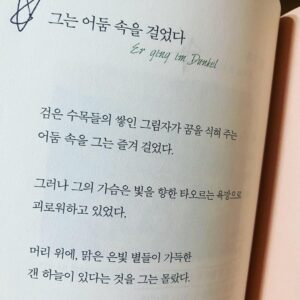 그는 어둠 속을 걸었다
Er ging im Dunkel
검은 수목들의 쌓인 그림자가 꿈을 식혀 주는
어둠 속을 그는 즐겨 걸었다.
그러나 그의 가슴은 빛을 향한 타오르는 욕망으로
괴로워하고 있었다.
머리 위에, 맑은 은빛 별들이 가득한
갠 하늘이 있다는 것을 그는 몰랐다.